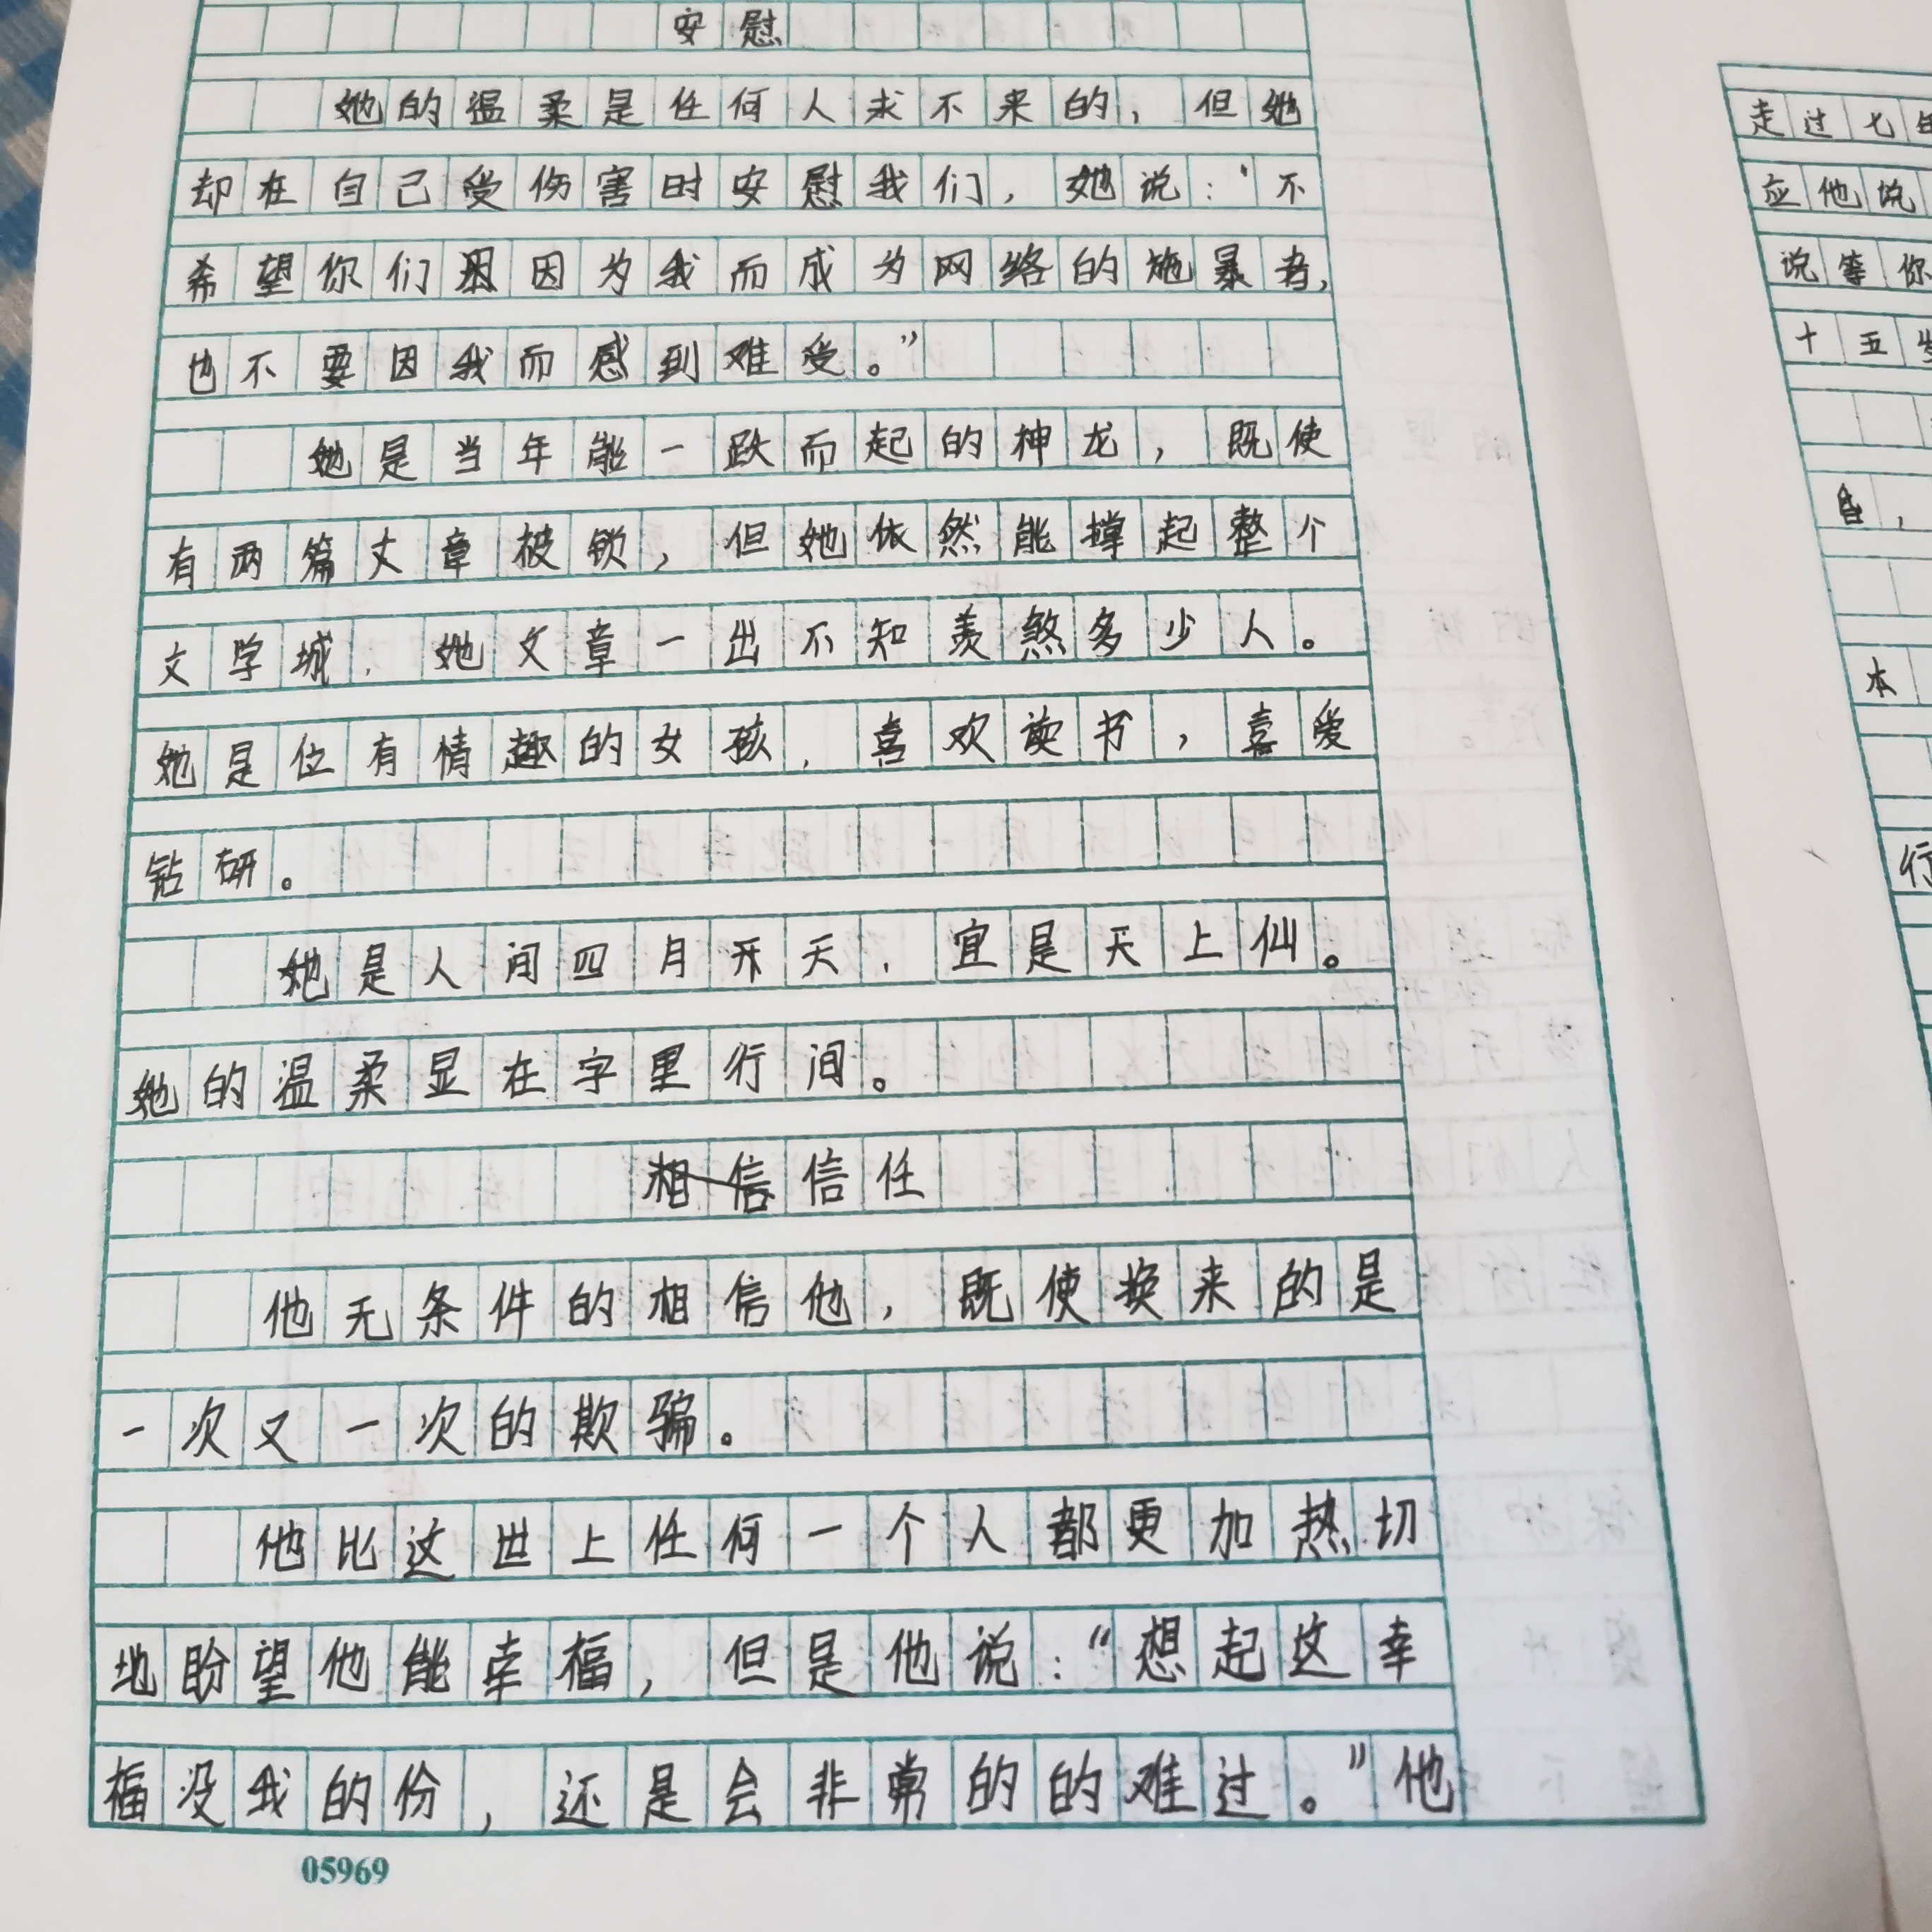 安慰
她的温柔是任何人求不来的，但她
却在自己受伤害时安慰我们，她说：“不
希望你们因因为我而成为网络的施暴者，
也不要因我而感到难受。”
她是当年能一跃而起的神龙，既使
有两篇文章被锁，但她依然能撑起整个
文学城，她文章一出不知羡煞多少人。
她是位有情趣的女孩，喜欢读书，喜爱
钻研。
她是人间四月开天，宜是天上仙。
她的温柔显在字里行间。
相信信任
他无条件的相信他，既使换来的是
一次又一次的欺骗。
他比这世上任何一个人都更加热切
地盼望他能幸福，但是他说：“想起这幸
福没我的份，还是会非常的的难过。”他
05969
走过七年
应他说
说等你
十五
自，
本
行